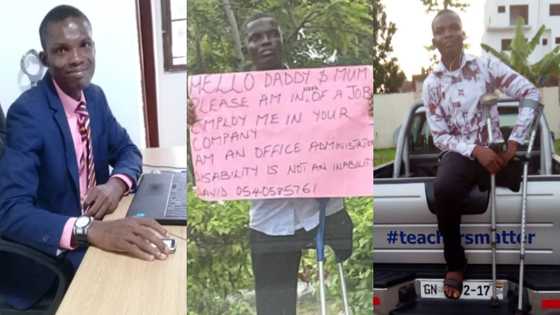 HELLO DADDY $ MUM
PLEASE AM IN OF A JOB
EMPLOY ME IN YOUR
COMPANY
AM AN OFFICE ADMINISTRATOR
DISABILITY IS NOT AN INABILITY
DAVID 0540585761
#teachersmatter
GN 2-17